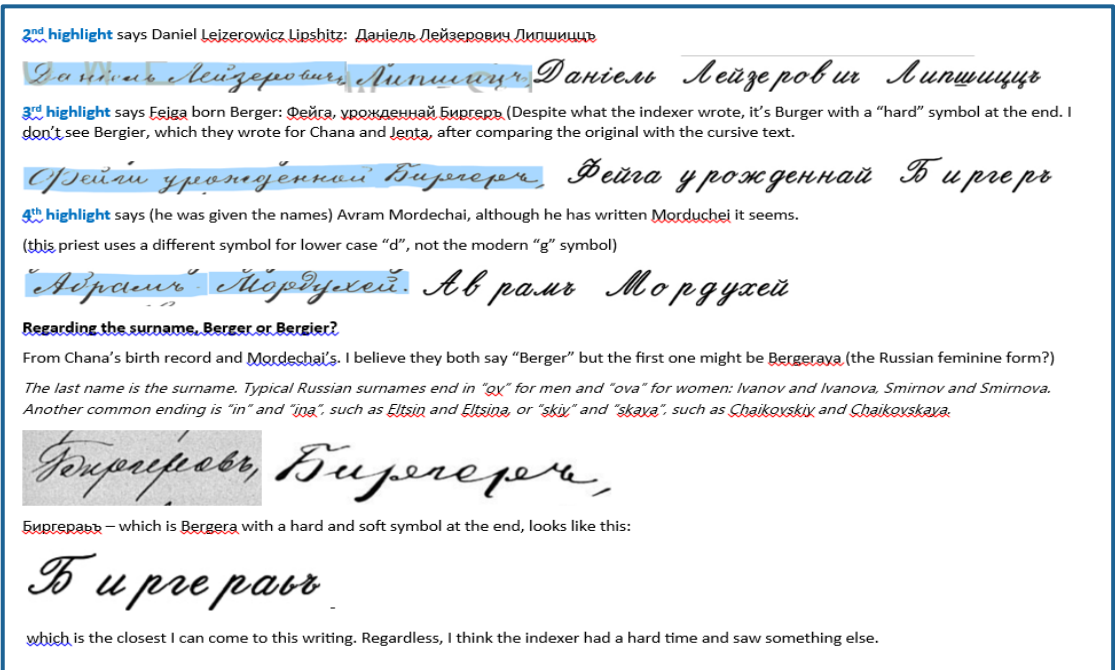 2nd highlight says Daniel Lejzerowicz Lipshitz: Даніель Лейзерович Липшиццъ
Даніель Лейзерович, Липшиццъ, Даніель Лейзерович Липшиццъ
3rd highlight says Fejga born Berger: Фейга, урожденнай Биргеръ (Despite what the indexer wrote, it's Burger with a “hard” symbol at the end. I
don't see Bergier, which they wrote for Chana and Jenta, after comparing the original with the cursive text.
Фейги урожденной Биргеръ, Фейга урожденнай Биргеръ
4th highlight says (he was given the names) Avram Mordechai, although he has written Morduchej it seems.
(this priest uses a different symbol for lower case “d”, not the modern “g” symbol)
Абрамъ Мордухей. Аврамъ Мордухей
Regarding the surname, Berger or Bergier?
From Chana's birth record and Mordechai's. I believe they both say “Berger” but the first one might be Bergeraya (the Russian feminine form?)
The last name is the surname. Typical Russian surnames end in “ov” for men and “ova” for women: Ivanov and Ivanova, Smirnov and Smirnova.
Another common ending is “in” and “ina”, such as Eltsin and Eltsina, or “skiy” and “skaya”, such as Chaikovskiy and Chaikovskaya.
Биргеръ,
Биргераьъ – which is Bergera with a hard and soft symbol at the end, looks like this:
Биргераьъ
which is the closest I can come to this writing. Regardless, I think the indexer had a hard time and saw something else.